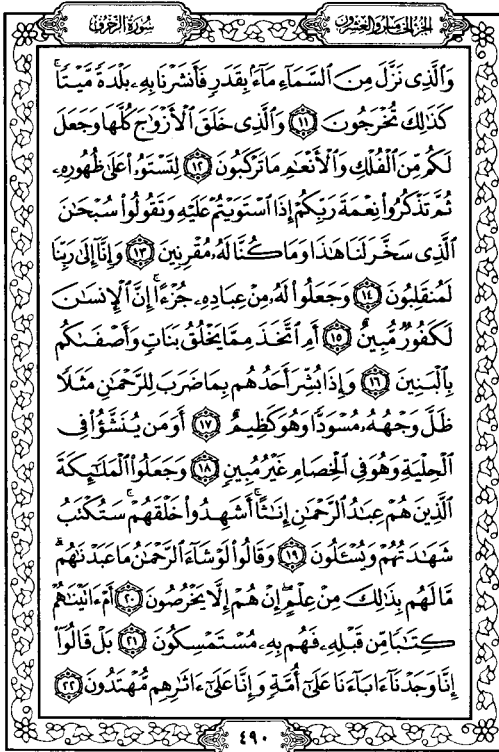 سُورَةُ الزُّخْرُفِ
الجُزْءُ الخَامِسُ وَالعِشْرُونَ
وَٱلَّذِى نَزَّلَ مِنَ ٱلسَّمَآءِ مَآءًۢ بِقَدَرٍ فَأَنشَرْنَا بِهِۦ بَلْدَةً مَّيْتًا ۚ
كَذَٰلِكَ تُخْرَجُونَ ١١ وَٱلَّذِى خَلَقَ ٱلْأَزْوَٰجَ كُلَّهَا وَجَعَلَ
لَكُم مِّنَ ٱلْفُلْكِ وَٱلْأَنْعَٰمِ مَا تَرْكَبُونَ ١٢ لِتَسْتَوُۥا۟ عَلَىٰ ظُهُورِهِۦ
ثُمَّ تَذْكُرُوا۟ نِعْمَةَ رَبِّكُمْ إِذَا ٱسْتَوَيْتُمْ عَلَيْهِ وَتَقُولُوا۟ سُبْحَٰنَ
ٱلَّذِى سَخَّرَ لَنَا هَٰذَا وَمَا كُنَّا لَهُۥ مُقْرِنِينَ ١٣ وَإِنَّآ إِلَىٰ رَبِّنَا
لَمُنقَلِبُونَ ١٤ وَجَعَلُوا۟ لَهُۥ مِنْ عِبَادِهِۦ جُزْءًا ۚ إِنَّ ٱلْإِنسَٰنَ
لَكَفُورٌ مُّبِينٌ ١٥ أَمِ ٱتَّخَذَ مِمَّا يَخْلُقُ بَنَاتٍ وَأَصْفَىٰكُم
بِٱلْبَنِينَ ١٦ وَإِذَا بُشِّرَ أَحَدُهُم بِمَا ضَرَبَ لِلرَّحْمَٰنِ مَثَلًا
ظَلَّ وَجْهُهُۥ مُسْوَدًّا وَهُوَ كَظِيمٌ ١٧ أَوَمَن يُنَشَّؤُا۟ فِى
ٱلْحِلْيَةِ وَهُوَ فِى ٱلْخِصَامِ غَيْرُ مُبِينٍ ١٨ وَجَعَلُوا۟ ٱلْمَلَٰٓئِكَةَ
ٱلَّذِينَ هُمْ عِبَٰدُ ٱلرَّحْمَٰنِ إِنَٰثًا ۚ أَشَهِدُوا۟ خَلْقَهُمْ ۚ سَتُكْتَبُ
شَهَٰدَتُهُمْ وَيُسْـَٔلُونَ ١٩ وَقَالُوا۟ لَوْ شَآءَ ٱلرَّحْمَٰنُ مَا عَبَدْنَٰهُم ۗ
مَّا لَهُم بِذَٰلِكَ مِنْ عِلْمٍ ۖ إِنْ هُمْ إِلَّا يَخْرُصُونَ ٢٠ أَمْ ءَاتَيْنَٰهُمْ
كِتَٰبًا مِّن قَبْلِهِۦ فَهُم بِهِۦ مُسْتَمْسِكُونَ ٢١ بَلْ قَالُوٓا۟
إِنَّا وَجَدْنَآ ءَابَآءَنَا عَلَىٰٓ أُمَّةٍ وَإِنَّا عَلَىٰٓ ءَاثَٰرِهِم مُّهْتَدُونَ ٢٢
٤٩٠